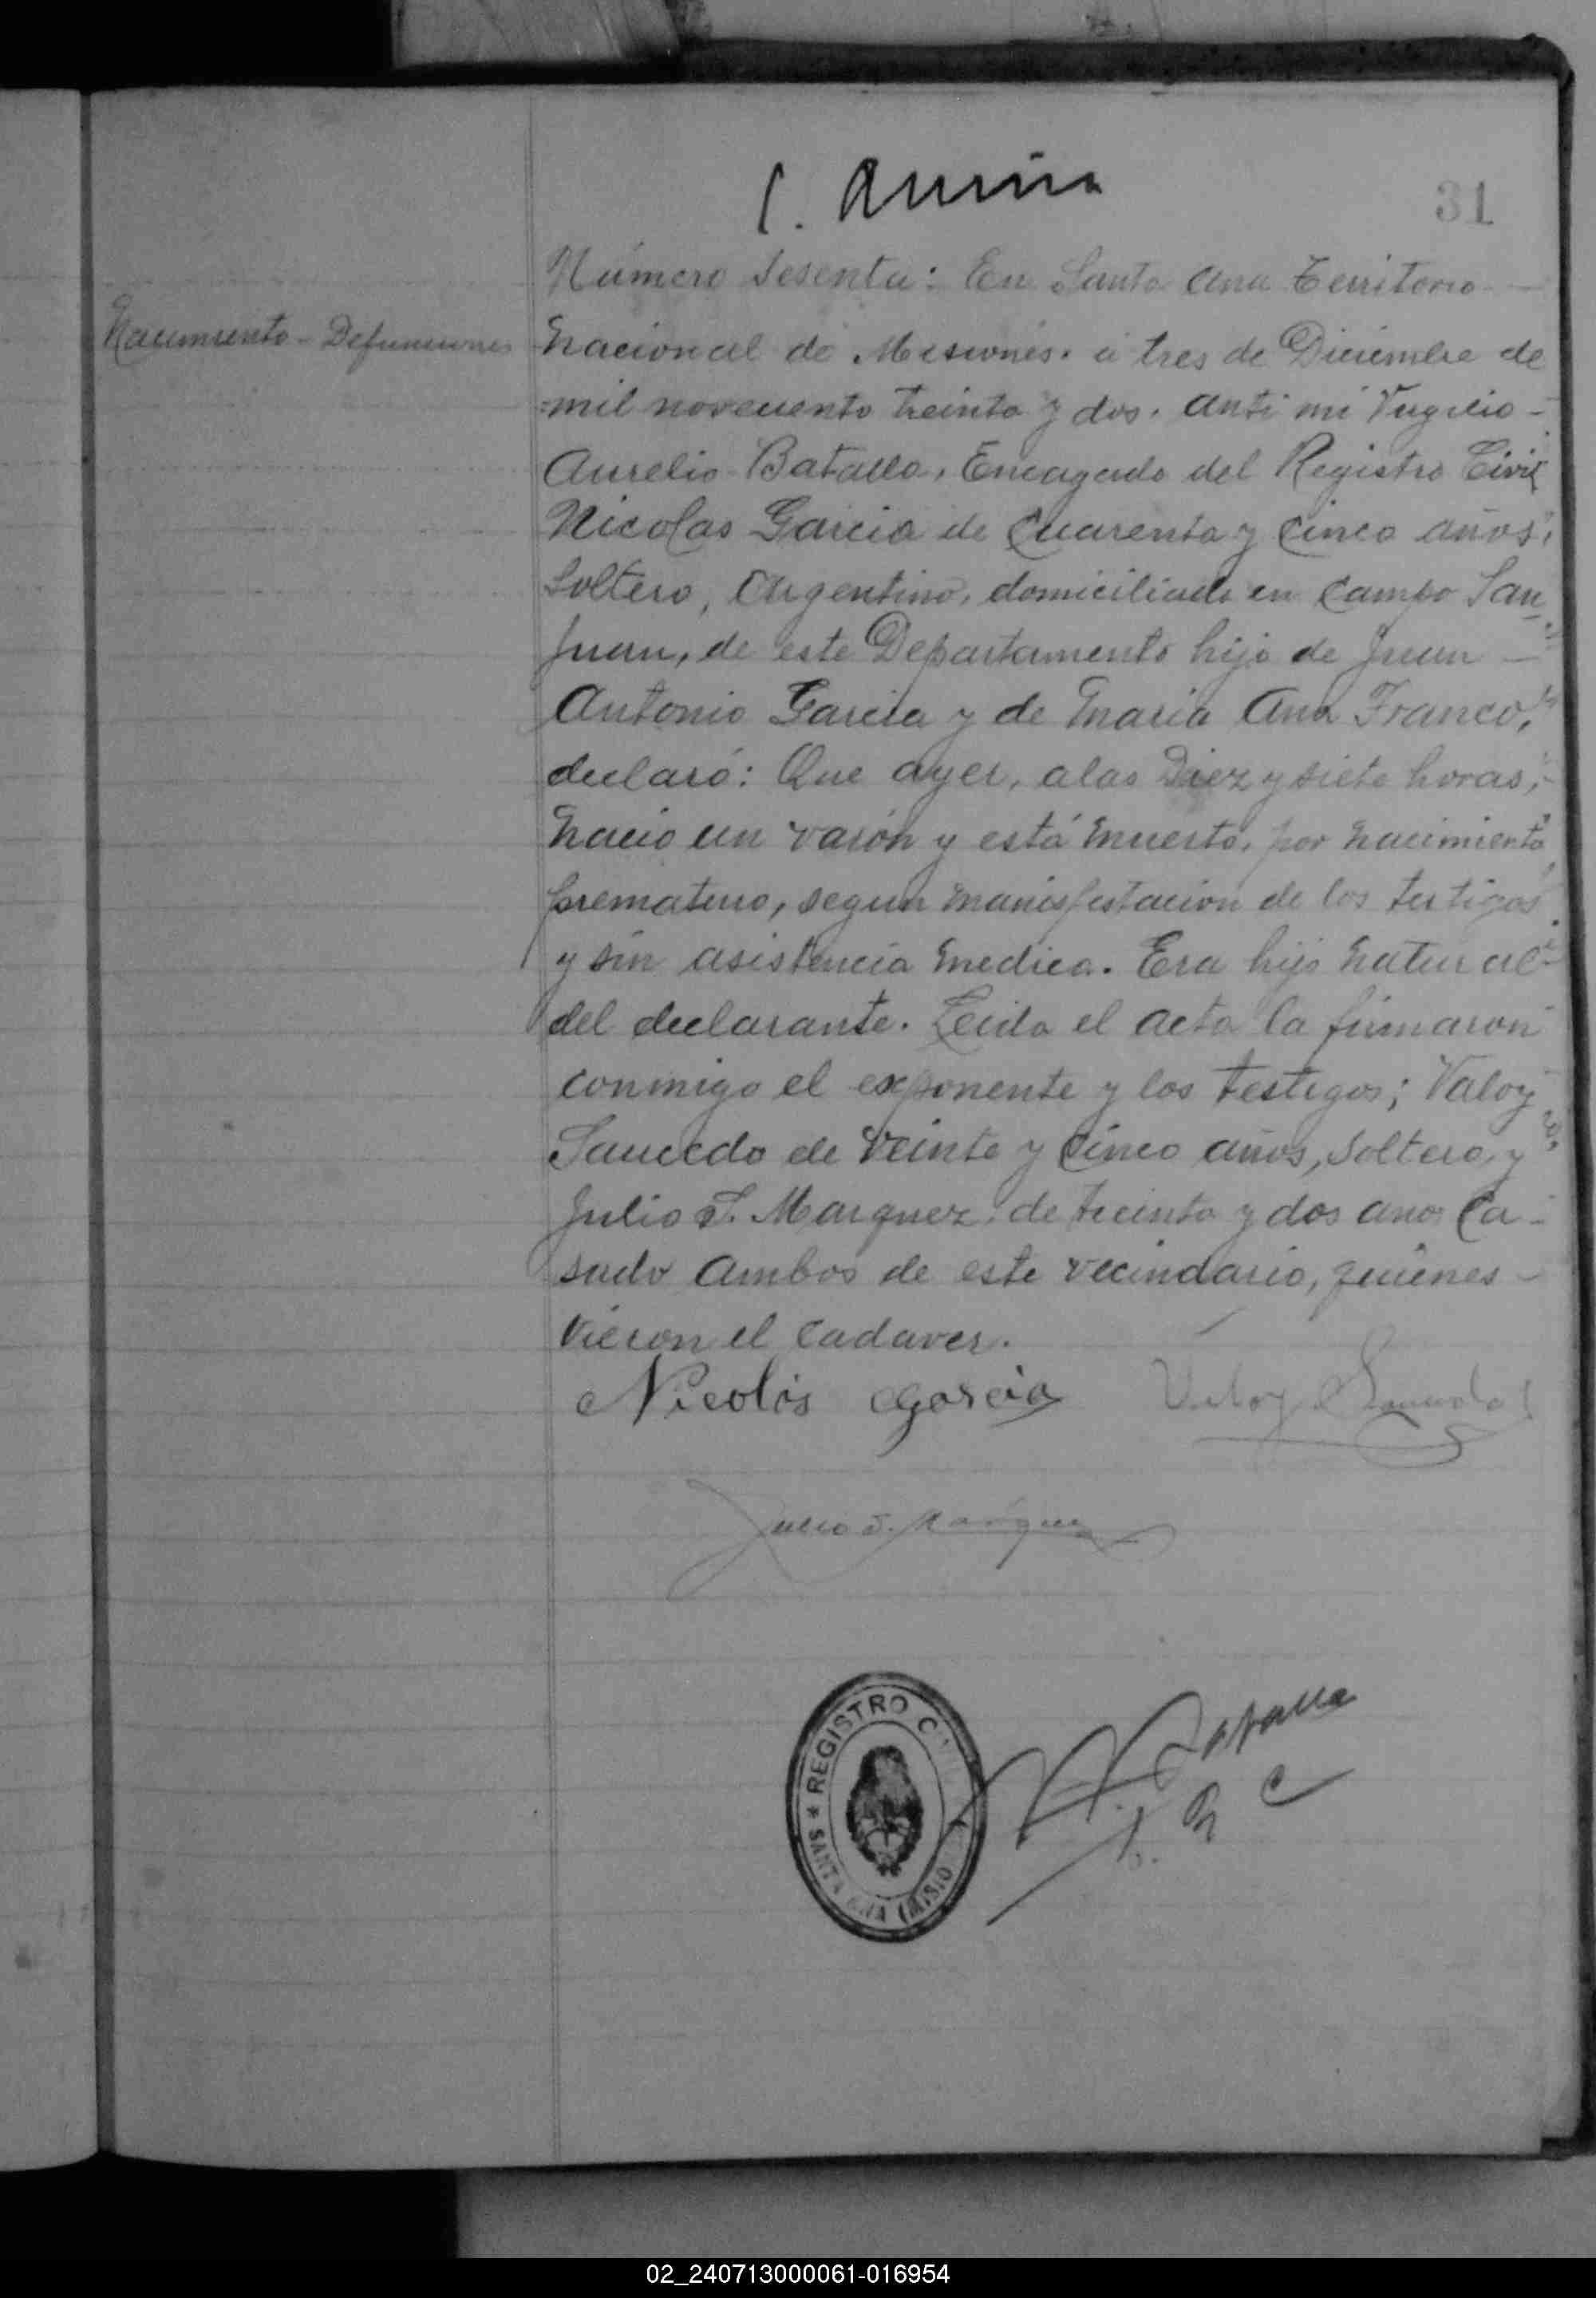 31
Número Sesenta: En Santa Ana Territorio
Nacimiento - Defunciones
Nacional de Misiones. a tres de Diciembre de
mil novecuento treinta y dos. Ante mi Virgilio
Aurelio Batalla, Encagado del Registro Civil
Nicolas Garcia de Cuarenta y Cinco años,
Soltero, Argentino, domiciliado en Campo San
Juan, de este Departamento hijo de Juan
Antonio Garcia y de Maria Ana Franco,
declaró: Que ayer, a las Diez y siete horas,
Nacio un varón y está Muerto, por Nacimiento
prematuro, segun Manisfestacion de los testigos
y sin asistencia Medica. Era hijo Natural
del declarante. Leida el acta la firmaron
conmigo el exponente y los testigos; Valoy
Saucedo de Veinte y Cinco años, Soltero, y
Julio S. Marquez, de treinta y dos anos Ca-
sado Ambos de este vecindario, quienes
Vieron el Cadaver.
Nicolás Garcia Valoy Saucedo
Julio S. Márquez
REGISTRO CIVIL
* SANTA ANA (MISIO
Batalla
02_240713000061-016954